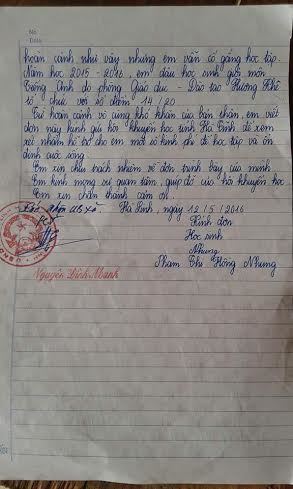 No:
Date:
hoàn cảnh như vậy nhưng em vẫn cố gắng học tập.
Năm học 2015 - 2016 em đậu học sinh giỏi môn
Tiếng Anh do phòng Giáo dục - Đào tạo Hương Khê
tổ chức với số điểm 14/20
Từ hoàn cảnh vô cùng khó khăn của bản thân, em viết
đơn này kính gửi hội khuyến học tỉnh Hà Tĩnh để xem
xét nhằm hỗ trợ cho em một số kinh phí để học tập và ổn
định cuộc sống.
Em xin chịu trách nhiệm về đơn trình bày của mình.
Em kính mong sự quan tâm, giúp đỡ của hội khuyến học
Em xin chân thành cảm ơn.
Xác nhận UB xã Hà Tĩnh, ngày 12/5/2016
Kính đơn
Học sinh
Nhung
Phạm Thị Hồng Nhung
Nguyễn Đình Mạnh